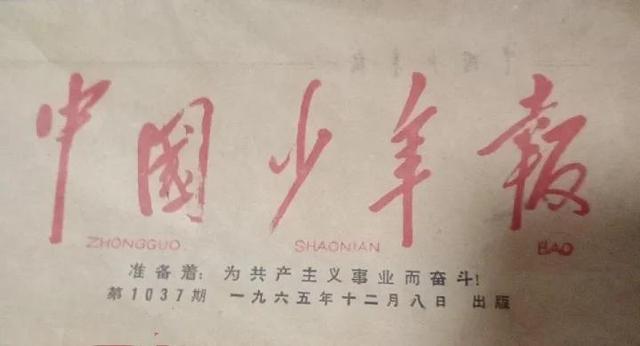 中国少年报
ZHONGGUO SHAONIAN BAO
准备着：为共产主义事业而奋斗！
第1037期 一九六五年十二月八日 出版